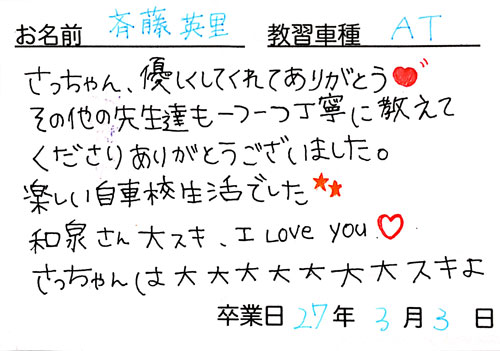 お名前 斉藤英里 教習車種 AT
さっちゃん、優しくしてくれてありがとう
その他の先生達も一つ一つ丁寧に教えて
くださりありがとうございました。
楽しい自車校生活でした
和泉さん大スキ、I Love you
さっちゃんは大大大大大大大スキよ
卒業日 27年 3月 3日